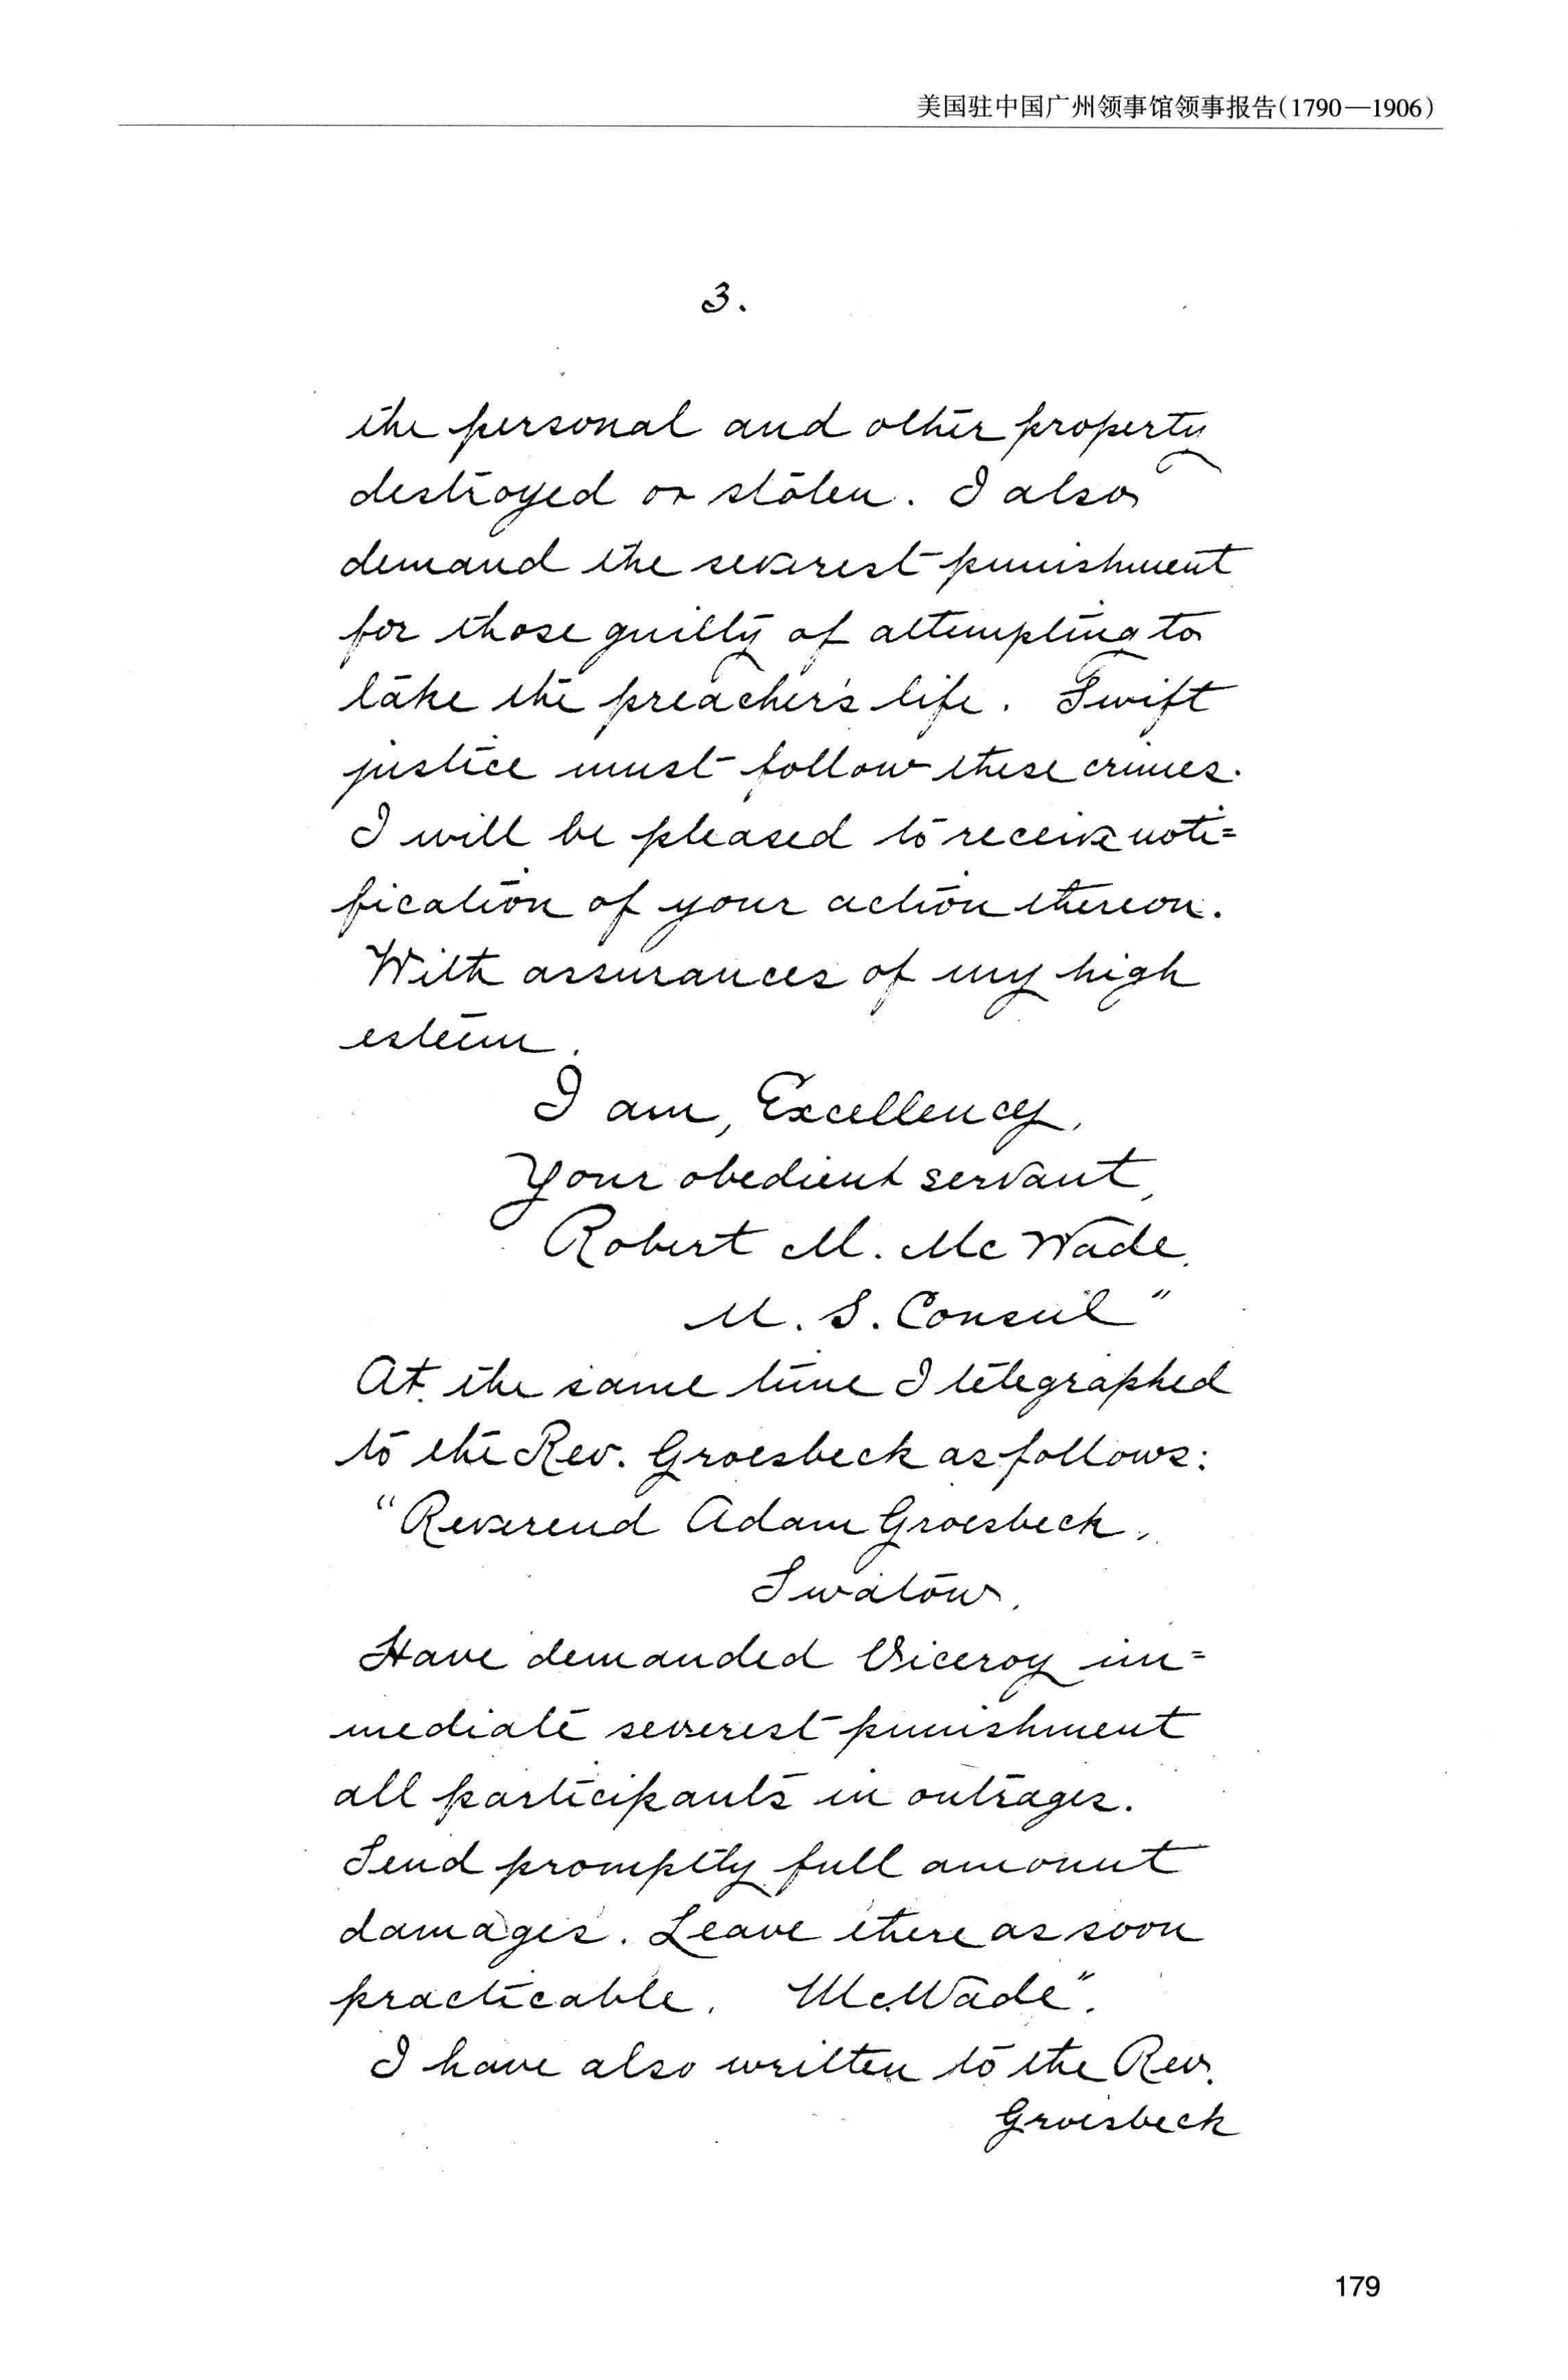 美国驻中国广州领事馆领事报告(1790—1906)
3.
the personal and other property
destroyed or stolen. I also
demand the severest punishment
for those guilty of attempting to
take the preacher's life. Swift
justice must follow these crimes.
I will be pleased to receive noti=
fication of your action thereon.
With assurances of my high
esteem.
I am, Excellency,
Your obedient servant,
Robert M. McWade.
U. S. Consul"
At the same time I telegraphed
to the Rev. Groesbeck as follows:
"Reverend Adam Groesbeck,
Swatow.
Have demanded Viceroy im=
mediate severest punishment
all participants in outrages.
Send promptly full amount
damages. Leave there as soon
practicable. McWade".
I have also written to the Rev.
Groesbeck
179